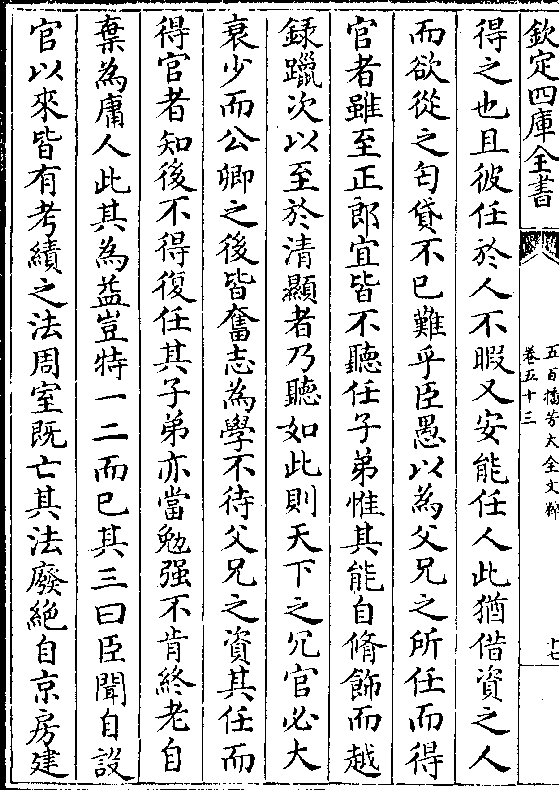 欽定四庫全書
五百家播芳大全文粹
卷五十三
十七
得之也且彼任於人不暇又安能任人此猶借資之人
而欲從之匄貸不已難乎臣愚以為父兄之所任而得
官者雖至正郎宜皆不聽任子弟惟其能自脩飾而越
錄躐次以至於清顯者乃聽如此則天下之冗官必大
衰少而公卿之後皆奮志為學不待父兄之資其任而
得官者知後不得復任其子弟亦當勉强不肯終老自
棄為庸人此其為益豈特一二而已其三曰臣聞自設
官以來皆有考績之法周室既亡其法廢絕自京房建